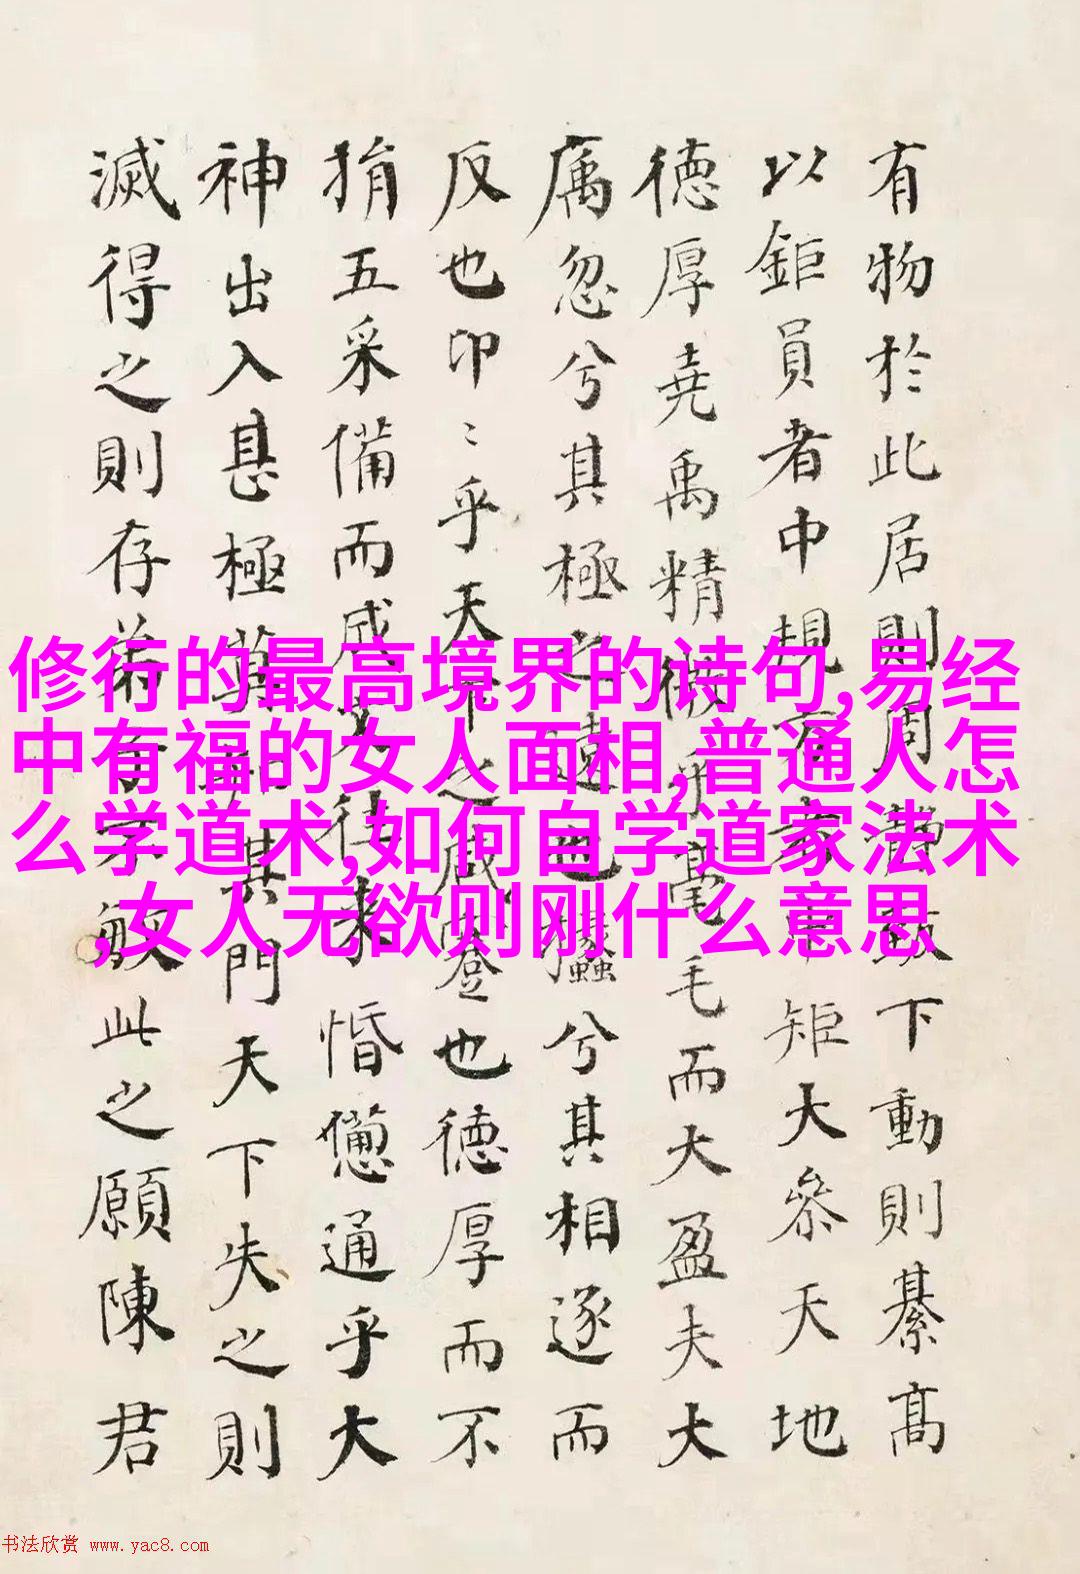 有物於此居則周致下動則綦高
以鉅員者中規方者中矩大參天地
德厚堯禹精微乎毫毛而大盈夫大
忽兮其極之遠也攭兮其相逐而
反也卬〻乎天下之咸蹇也德厚而不
捐五采備而成文往來惛憊通乎大
神出入甚極莫知其門天下失之則
滅得之則存弟子不敏此之願陳君
修行的最高境界的诗句,易经
中有福的女人面相,普通人怎
么学道术,如何自学道家法术
,女人无欲则刚什么意思
书法欣赏 www.yac8.com